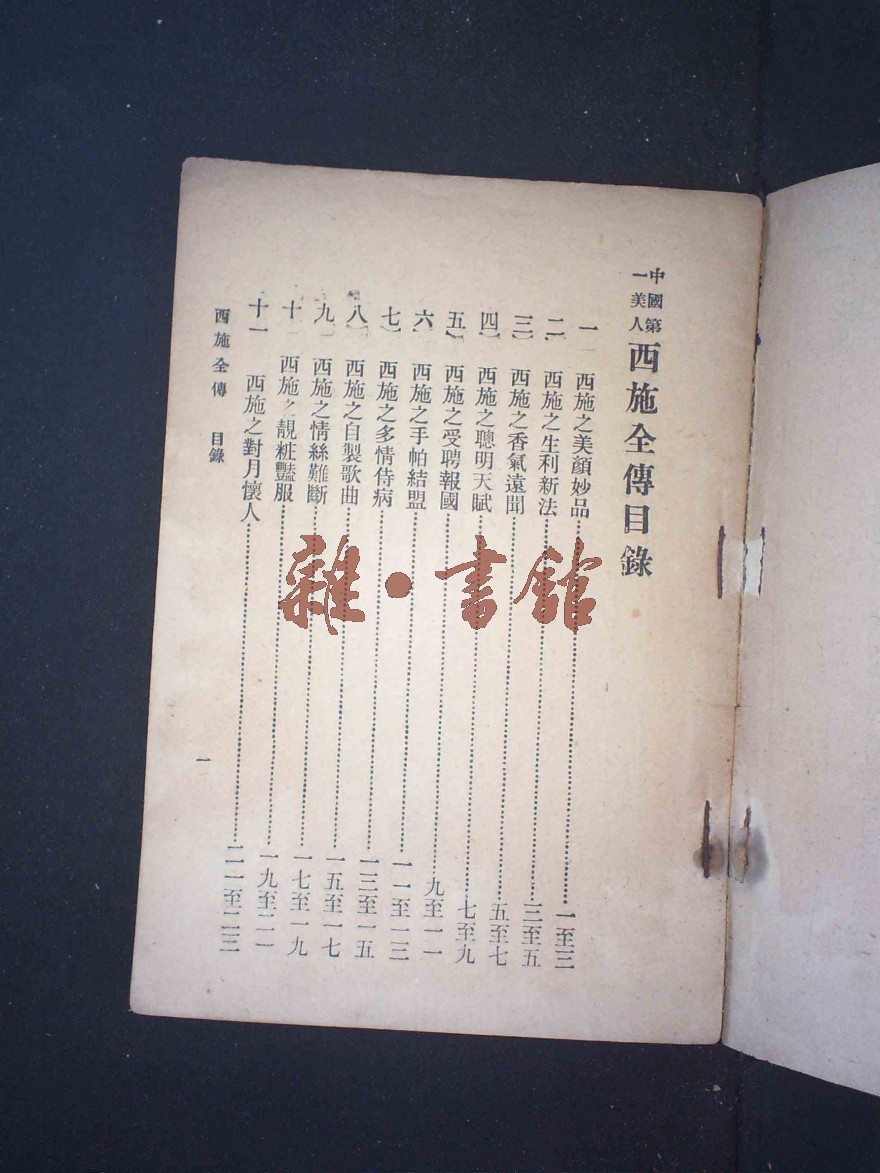 中國第一美人 西施全傳目錄
一 西施之美顏妙品……一至三
二 西施之生利新法……三至五
三 西施之香氣遠聞……五至七
四 西施之聰明天賦……七至九
五 西施之受聘報國……九至一一
六 西施之手帕結盟……一一至一三
七 西施之多情侍病……一三至一五
八 西施之自製歌曲……一五至一七
九 西施之情絲難斷……一七至一九
十 西施之靚粧豔服……一九至二一
十一 西施之對月懷人……二一至二三
西施全傳 目錄 一
雜·書館